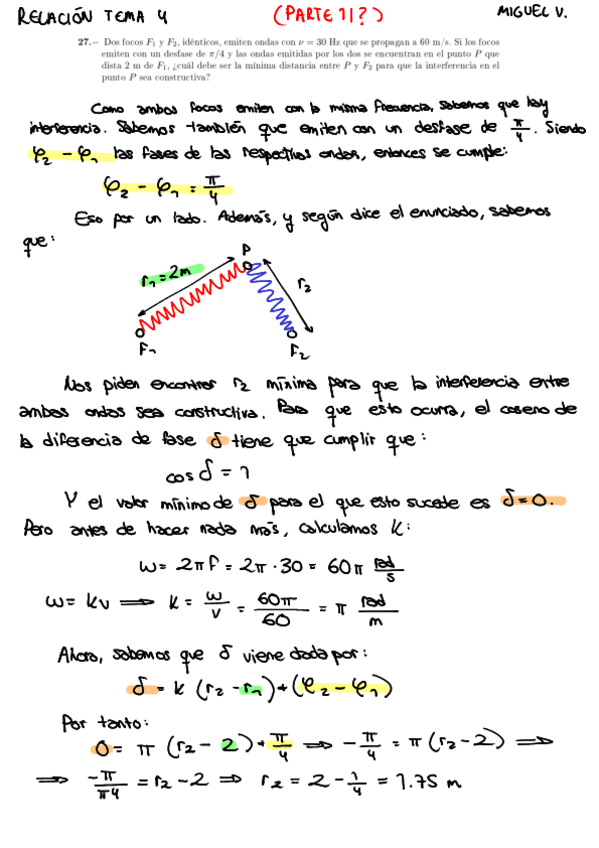 RELACIÓN TEMA 4 (PARTE 1|?) MIGUEL V.
27.– Dos focos F₁ y F₂, idénticos, emiten ondas con ν = 30 Hz que se propagan a 60 m/s. Si los focos
emiten con un desfase de π/4 y las ondas emitidas por los dos se encuentran en el punto P que
dista 2 m de F₁, ¿cuál debe ser la mínima distancia entre P y F₂ para que la interferencia en el
punto P sea constructiva?
Como ambos focos emiten con la misma frecuencia, sabemos que hay
interferencia. Sabemos también que emiten con un desfase de π/4. Siendo
φ₂ - φ₁ las fases de las respectivas ondas, entonces se cumple:
φ₂ - φ₁ = π/4
Eso por un lado. Además, y según dice el enunciado, sabemos
que:
P
r₁ = 2m
r₂
F₁ F₂
Nos piden encontrar r₂ mínima para que la interferencia entre
ambas ondas sea constructiva. Para que esto ocurra, el coseno de
la diferencia de fase δ tiene que cumplir que:
cos δ = 1
Y el valor mínimo de δ para el que esto sucede es δ = 0.
Pero antes de hacer nada más, calculamos K:
ω = 2πf = 2π · 30 = 60π rad/s
ω = kv ⟹ k = ω/v = 60π/60 = π rad/m
Ahora, sabemos que δ viene dada por:
δ = k (r₂ - r₁) + (φ₂ - φ₁)
Por tanto:
0 = π (r₂ - 2) + π/4 ⟹ -π/4 = π (r₂ - 2) ⟹
⟹ -π/π4 = r₂ - 2 ⟹ r₂ = 2 - 1/4 = 1.75 m